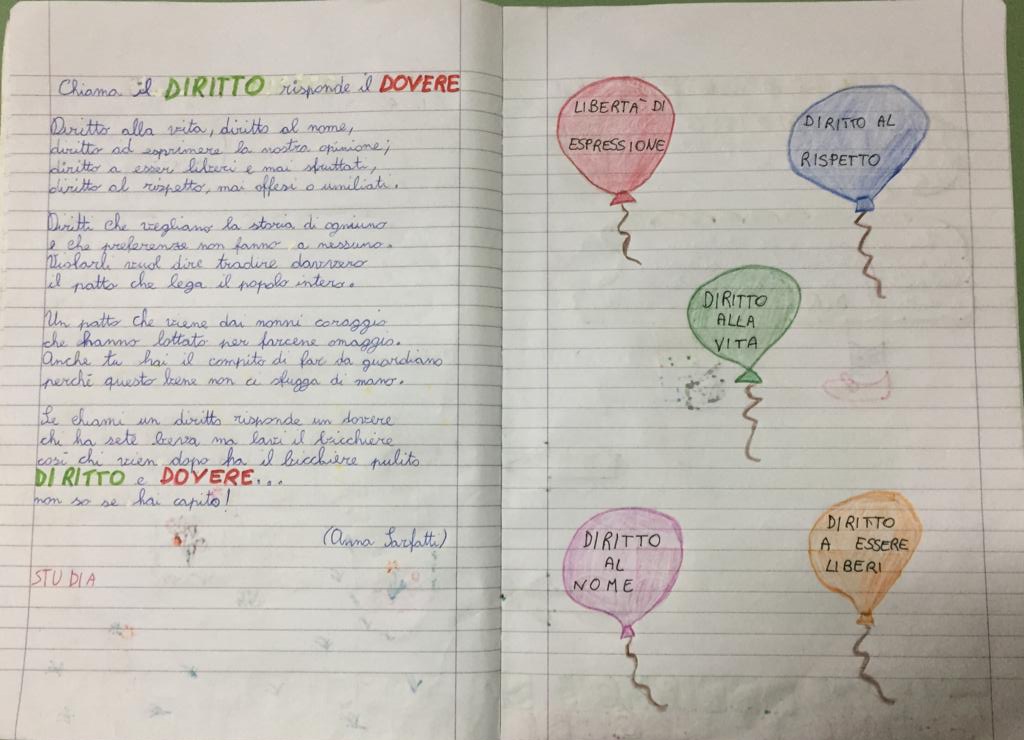 Chiama il DIRITTO risponde il DOVERE
Diritto alla vita, diritto al nome,
diritto ad esprimere la nostra opinione;
diritto a esser liberi e mai sfruttati,
diritto al rispetto, mai offesi o umiliati.
Diritti che vegliano la storia di ogniuno
e che preferenze non fanno a nessuno.
Violarli vuol dire tradire davvero
il patto che lega il popolo intero.
Un patto che viene dai nonni coraggio
che hanno lottato per farcene omaggio.
Anche tu hai il compito di far da guardiano
perché questo bene non ci sfugga di mano.
Se chiami un diritto risponde un dovere
chi ha sete beva ma lavi il bicchiere
così chi vien dopo ha il bicchiere pulito
DIRITTO e DOVERE...
non so se hai capito!
(Anna Sarfatti)
STUDIA
LIBERTÀ DI
ESPRESSIONE
DIRITTO AL
RISPETTO
DIRITTO
ALLA
VITA
DIRITTO
AL
NOME
DIRITTO
A ESSERE
LIBERI